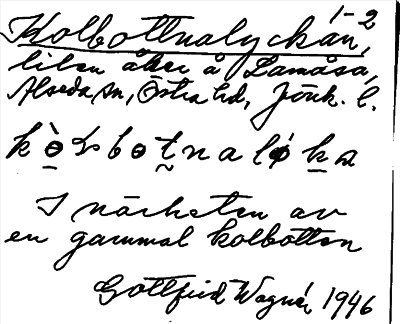 1-2
Kolbottnalyckan,
liten åker å Lamåsa,
Alseda sn, Östra hd, Jönk. l.
I närheten av
en gammal kolbotten
Gottfrid Wagnér, 1946